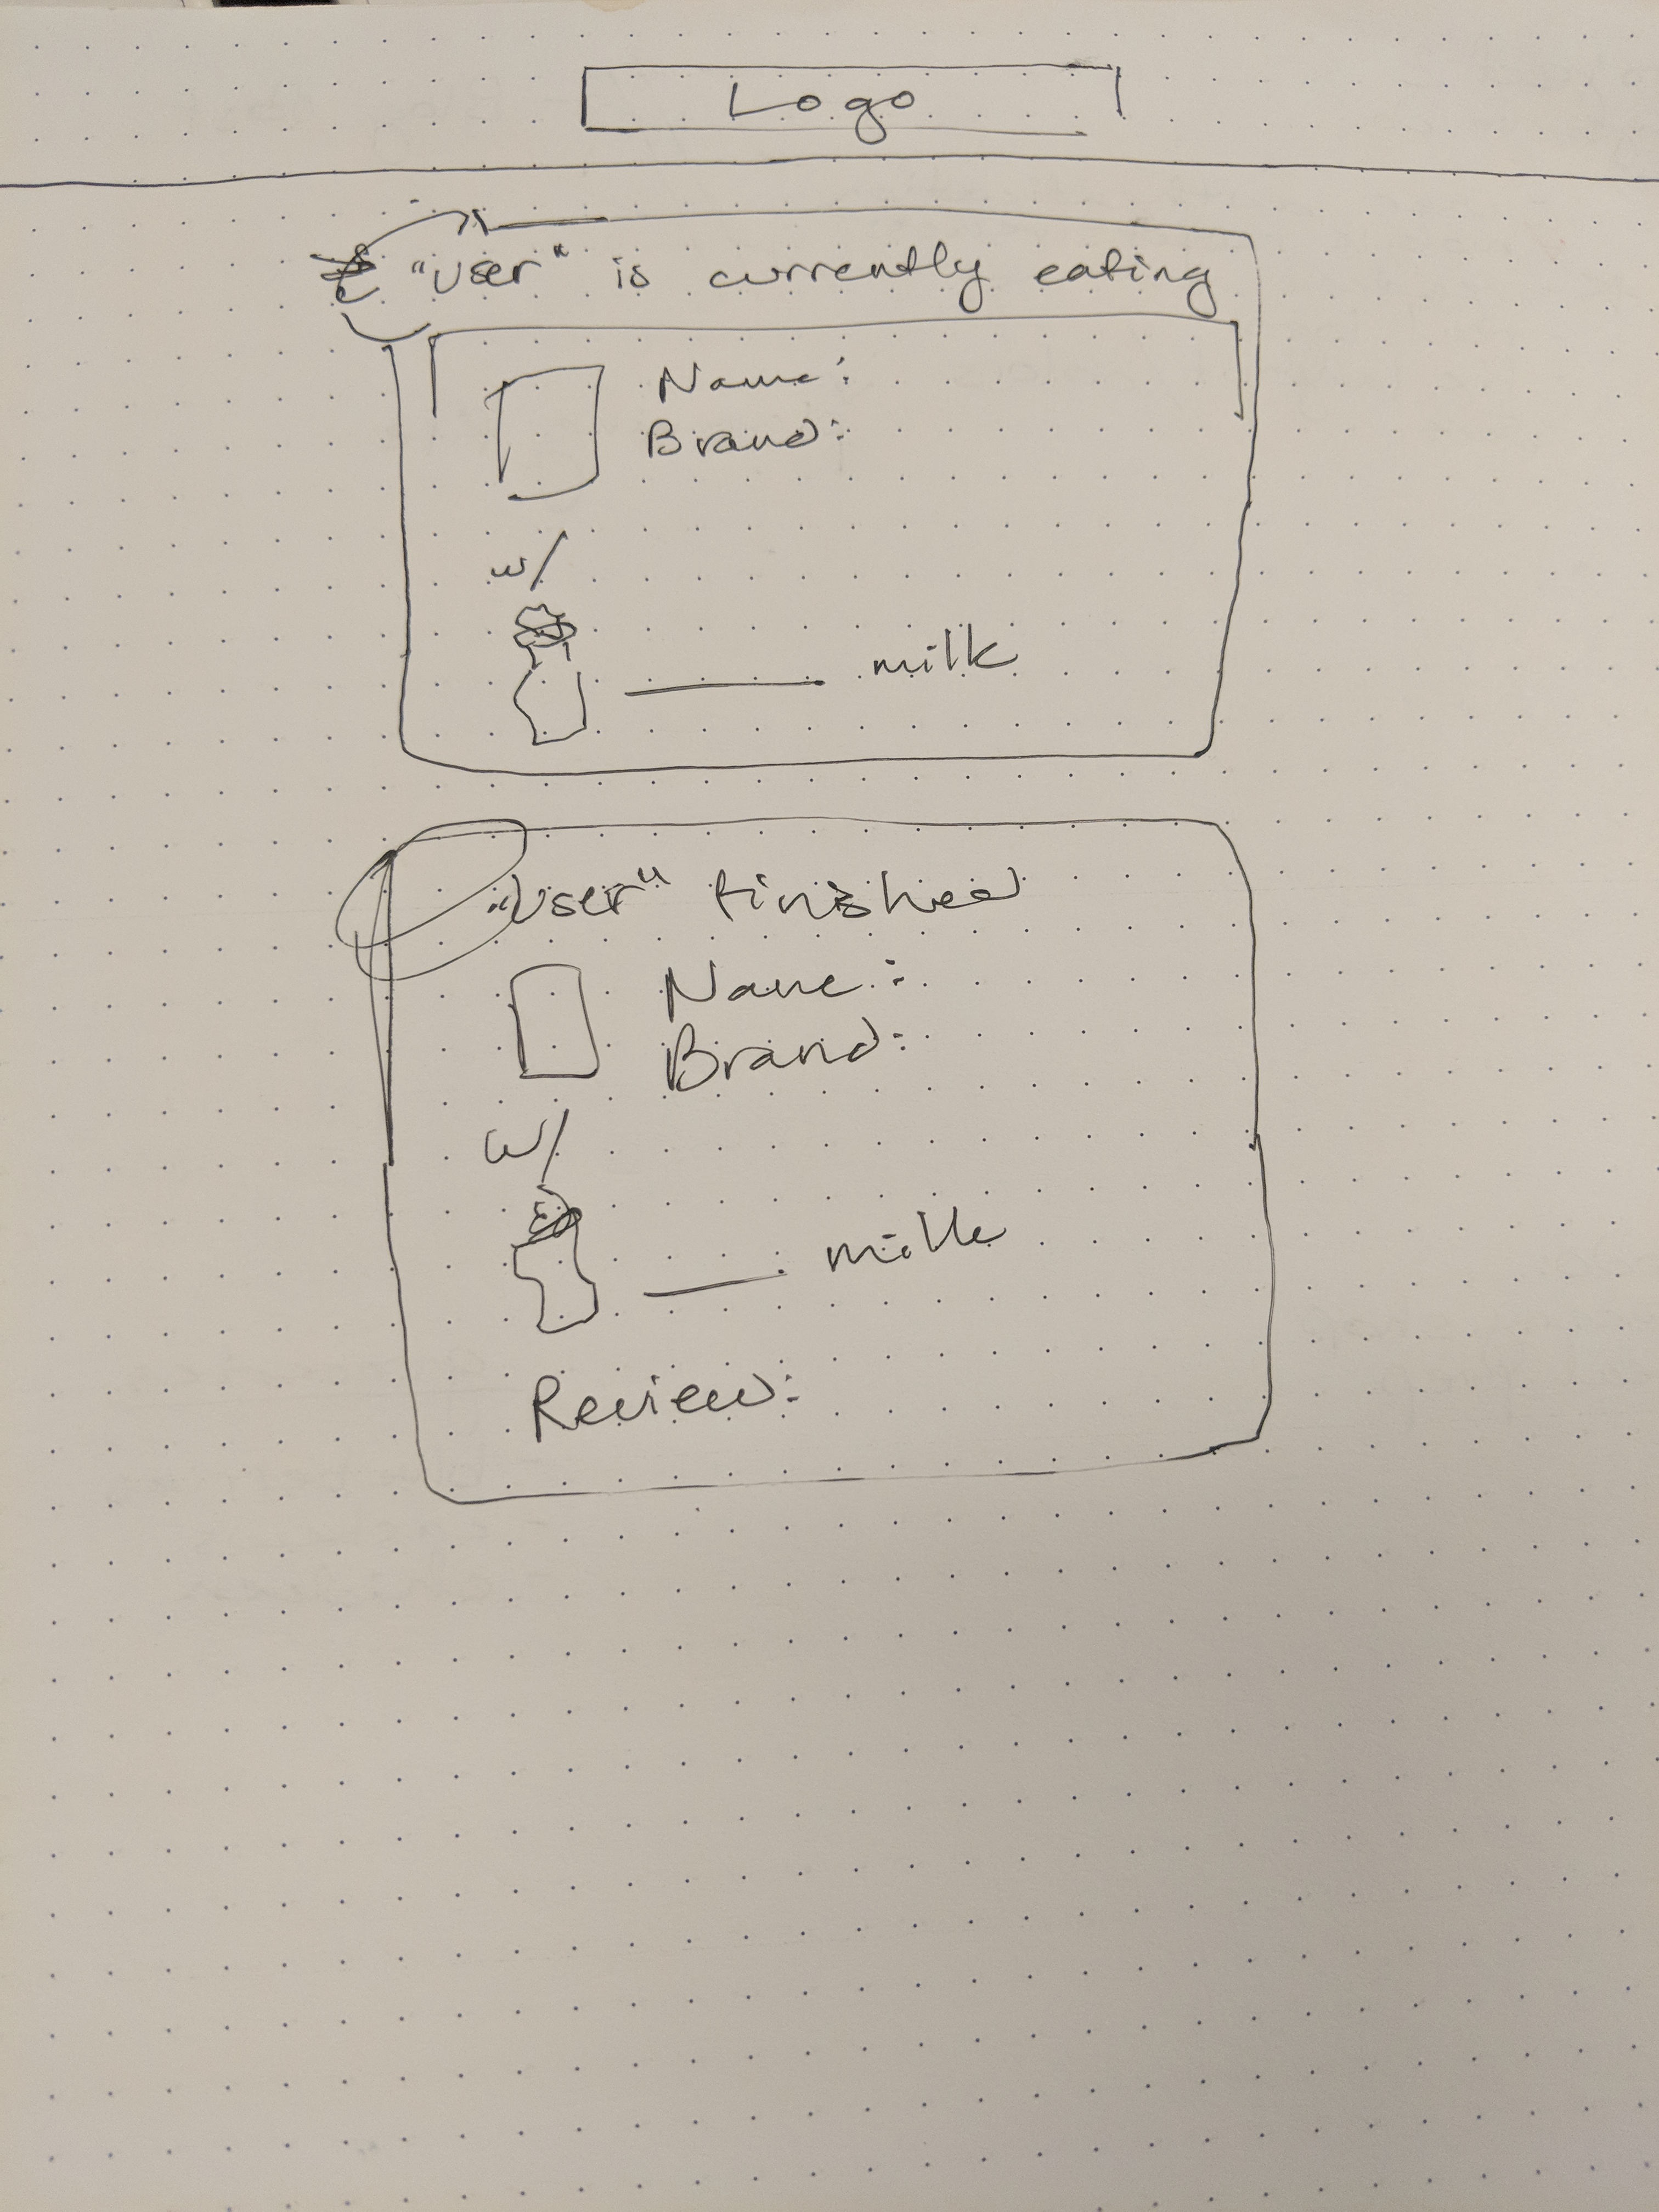 Logo
"user" is currently eating
Name:
Brand:
w/
milk
"User" finished
Name:
Brand:
w/
milk
Review: